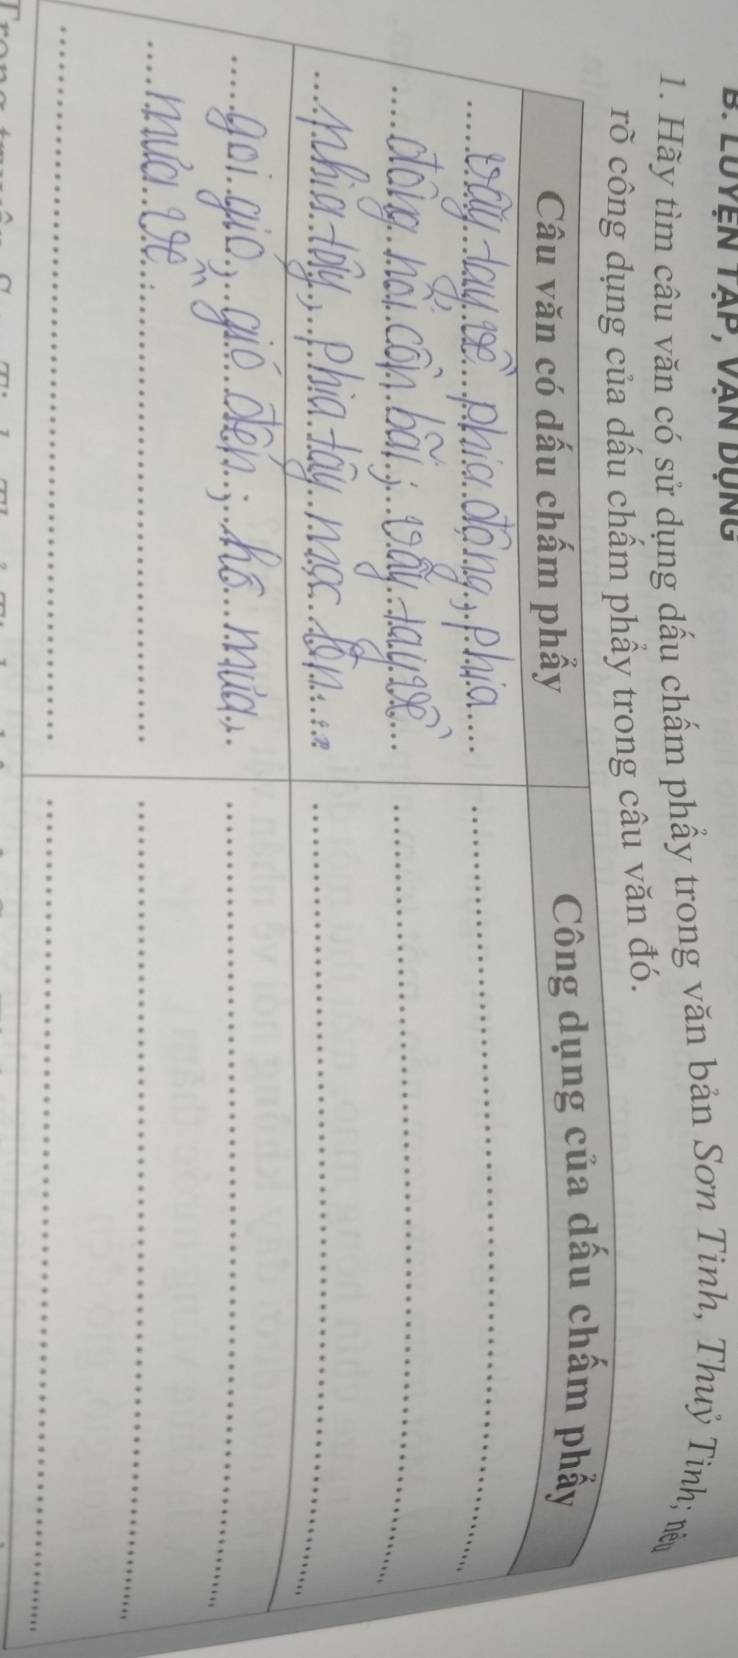 B. LUYỆN TẬP, VẬN DỤNG
1. Hãy tìm câu văn có sử dụng dấu chấm phẩy trong văn bản Sơn Tinh, Thuỷ Tinh; nêu
rõ công dụng của dấu chấm phẩy trong câu văn đó.
Câu văn có dấu chấm phẩy
Công dụng của dấu chấm phẩy
vẫy tay về phía đông, phía
đông nổi cồn bãi; vẫy tay về
phía tây, phía tây mọc lên...
gọi gió, gió đến; hô mưa,
mưa về.